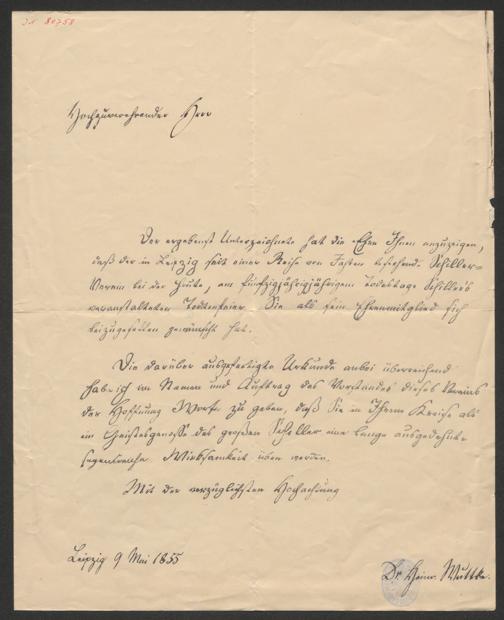 I.N. 80758
Hochzuverehrender Herr
Der ergebenst Unterzeichnete hat die Ehre Ihnen anzuzeigen,
daß der in Leipzig seit einer Reihe von Jahren bestehende Schiller-
Verein bei der heute, am fünfzigjährigen Todestage Schiller's
veranstalteten Todtenfeier Sie als sein Ehrenmitglied sich
beizugesellen gewünscht hat.
Die darüber ausgefertigte Urkunde anbei überreichend
habe ich im Namen und Auftrag des Vorstandes dieses Vereins
der Hoffnung Worte zu geben, daß Sie in Ihrem Kreise als
ein Geistesgenosse des großen Schiller eine lange ausgedehnte
segensreiche Wirksamkeit üben werden.
Mit der vorzüglichsten Hochachtung
Leipzig 9 Mai 1855
Dr Heinr. Wuttke.